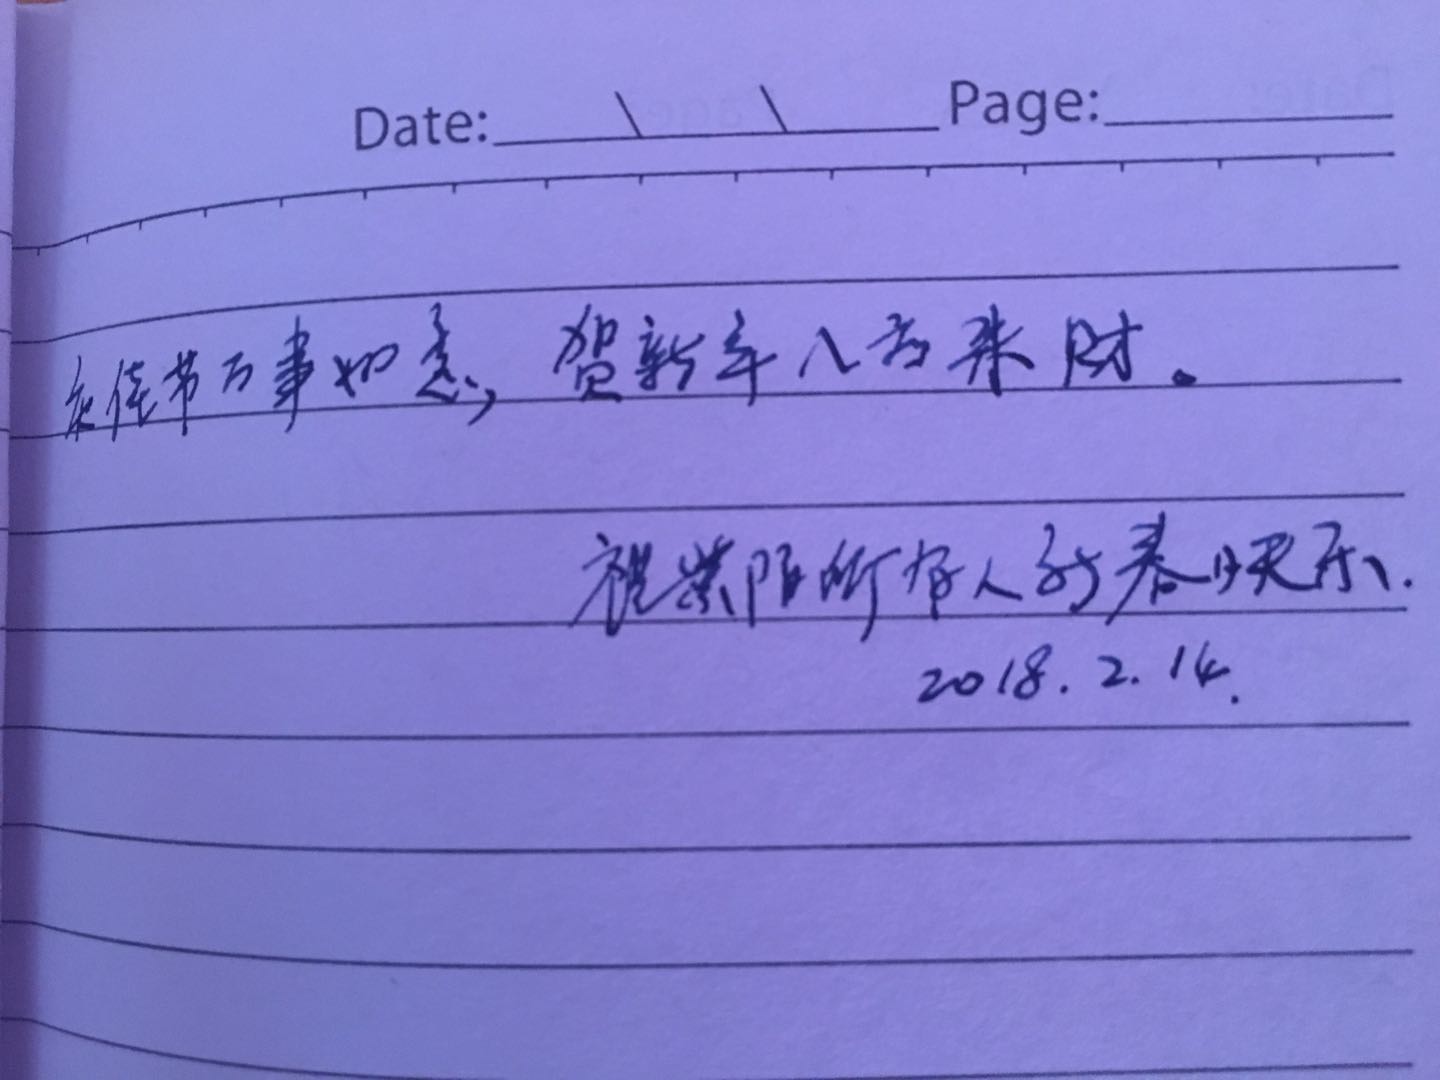 Date: \ \ Page:
庆佳节万事如意，贺新年八方来财。
祝紫阳所有人的春快乐.
2018.2.14.